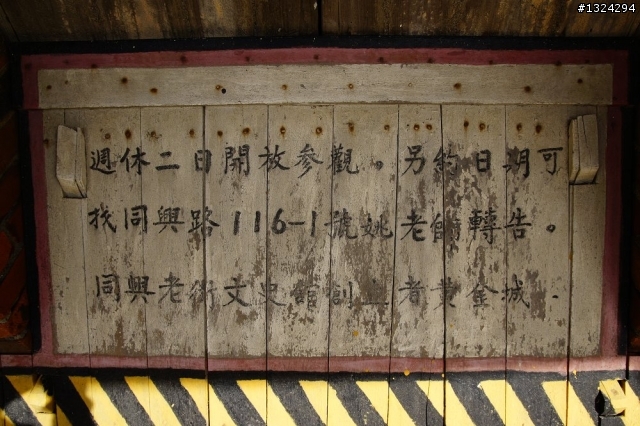 #1324294
週休二日開放參觀。另約日期可
找同興路116-1號姚老師轉告。
同興老街文史館創立者黃金城.